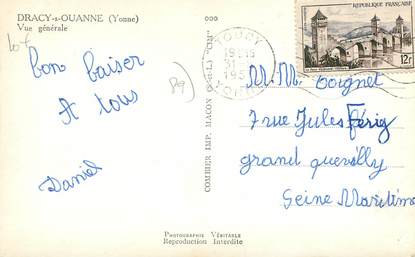 DRACY-s-OUANNE (Yonne)
Vue générale
bon baiser
A tous
Daniel
89
COMBIER IMP. MACON (S.-&-L.) "CIM"
TOUCY
19-15
31-
195
YONNE
REPUBLIQUE FRANÇAISE
12F
M. M. Coignet
7 rue Jules Férig
grand quevilly
Seine Maritime
Photographie Véritable
Reproduction Interdite